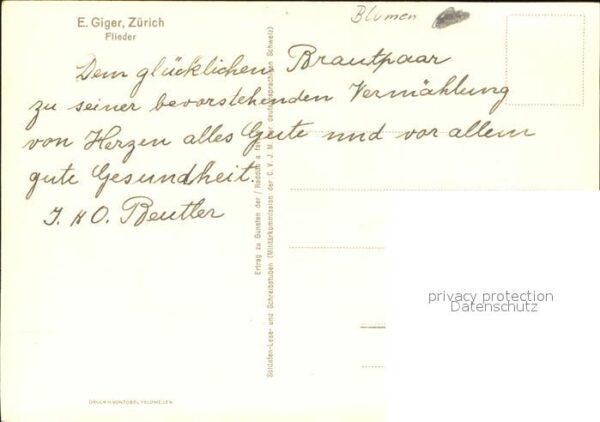 E. Giger, Zürich
Flieder
Blumen
Dem glücklichen Brautpaar
zu seiner bevorstehenden Vermählung
von Herzen alles Gute und vor allem
gute Gesundheit.
O. Beutler
Ertrag zu Gunsten der
Soldaten-Lese- und Schreibstuben (Militärkommission der C.V.J.M. deutschsprachigen Schweiz)
privacy protection
Datenschutz
DRUCK H. VONTOBEL FELDMEILEN